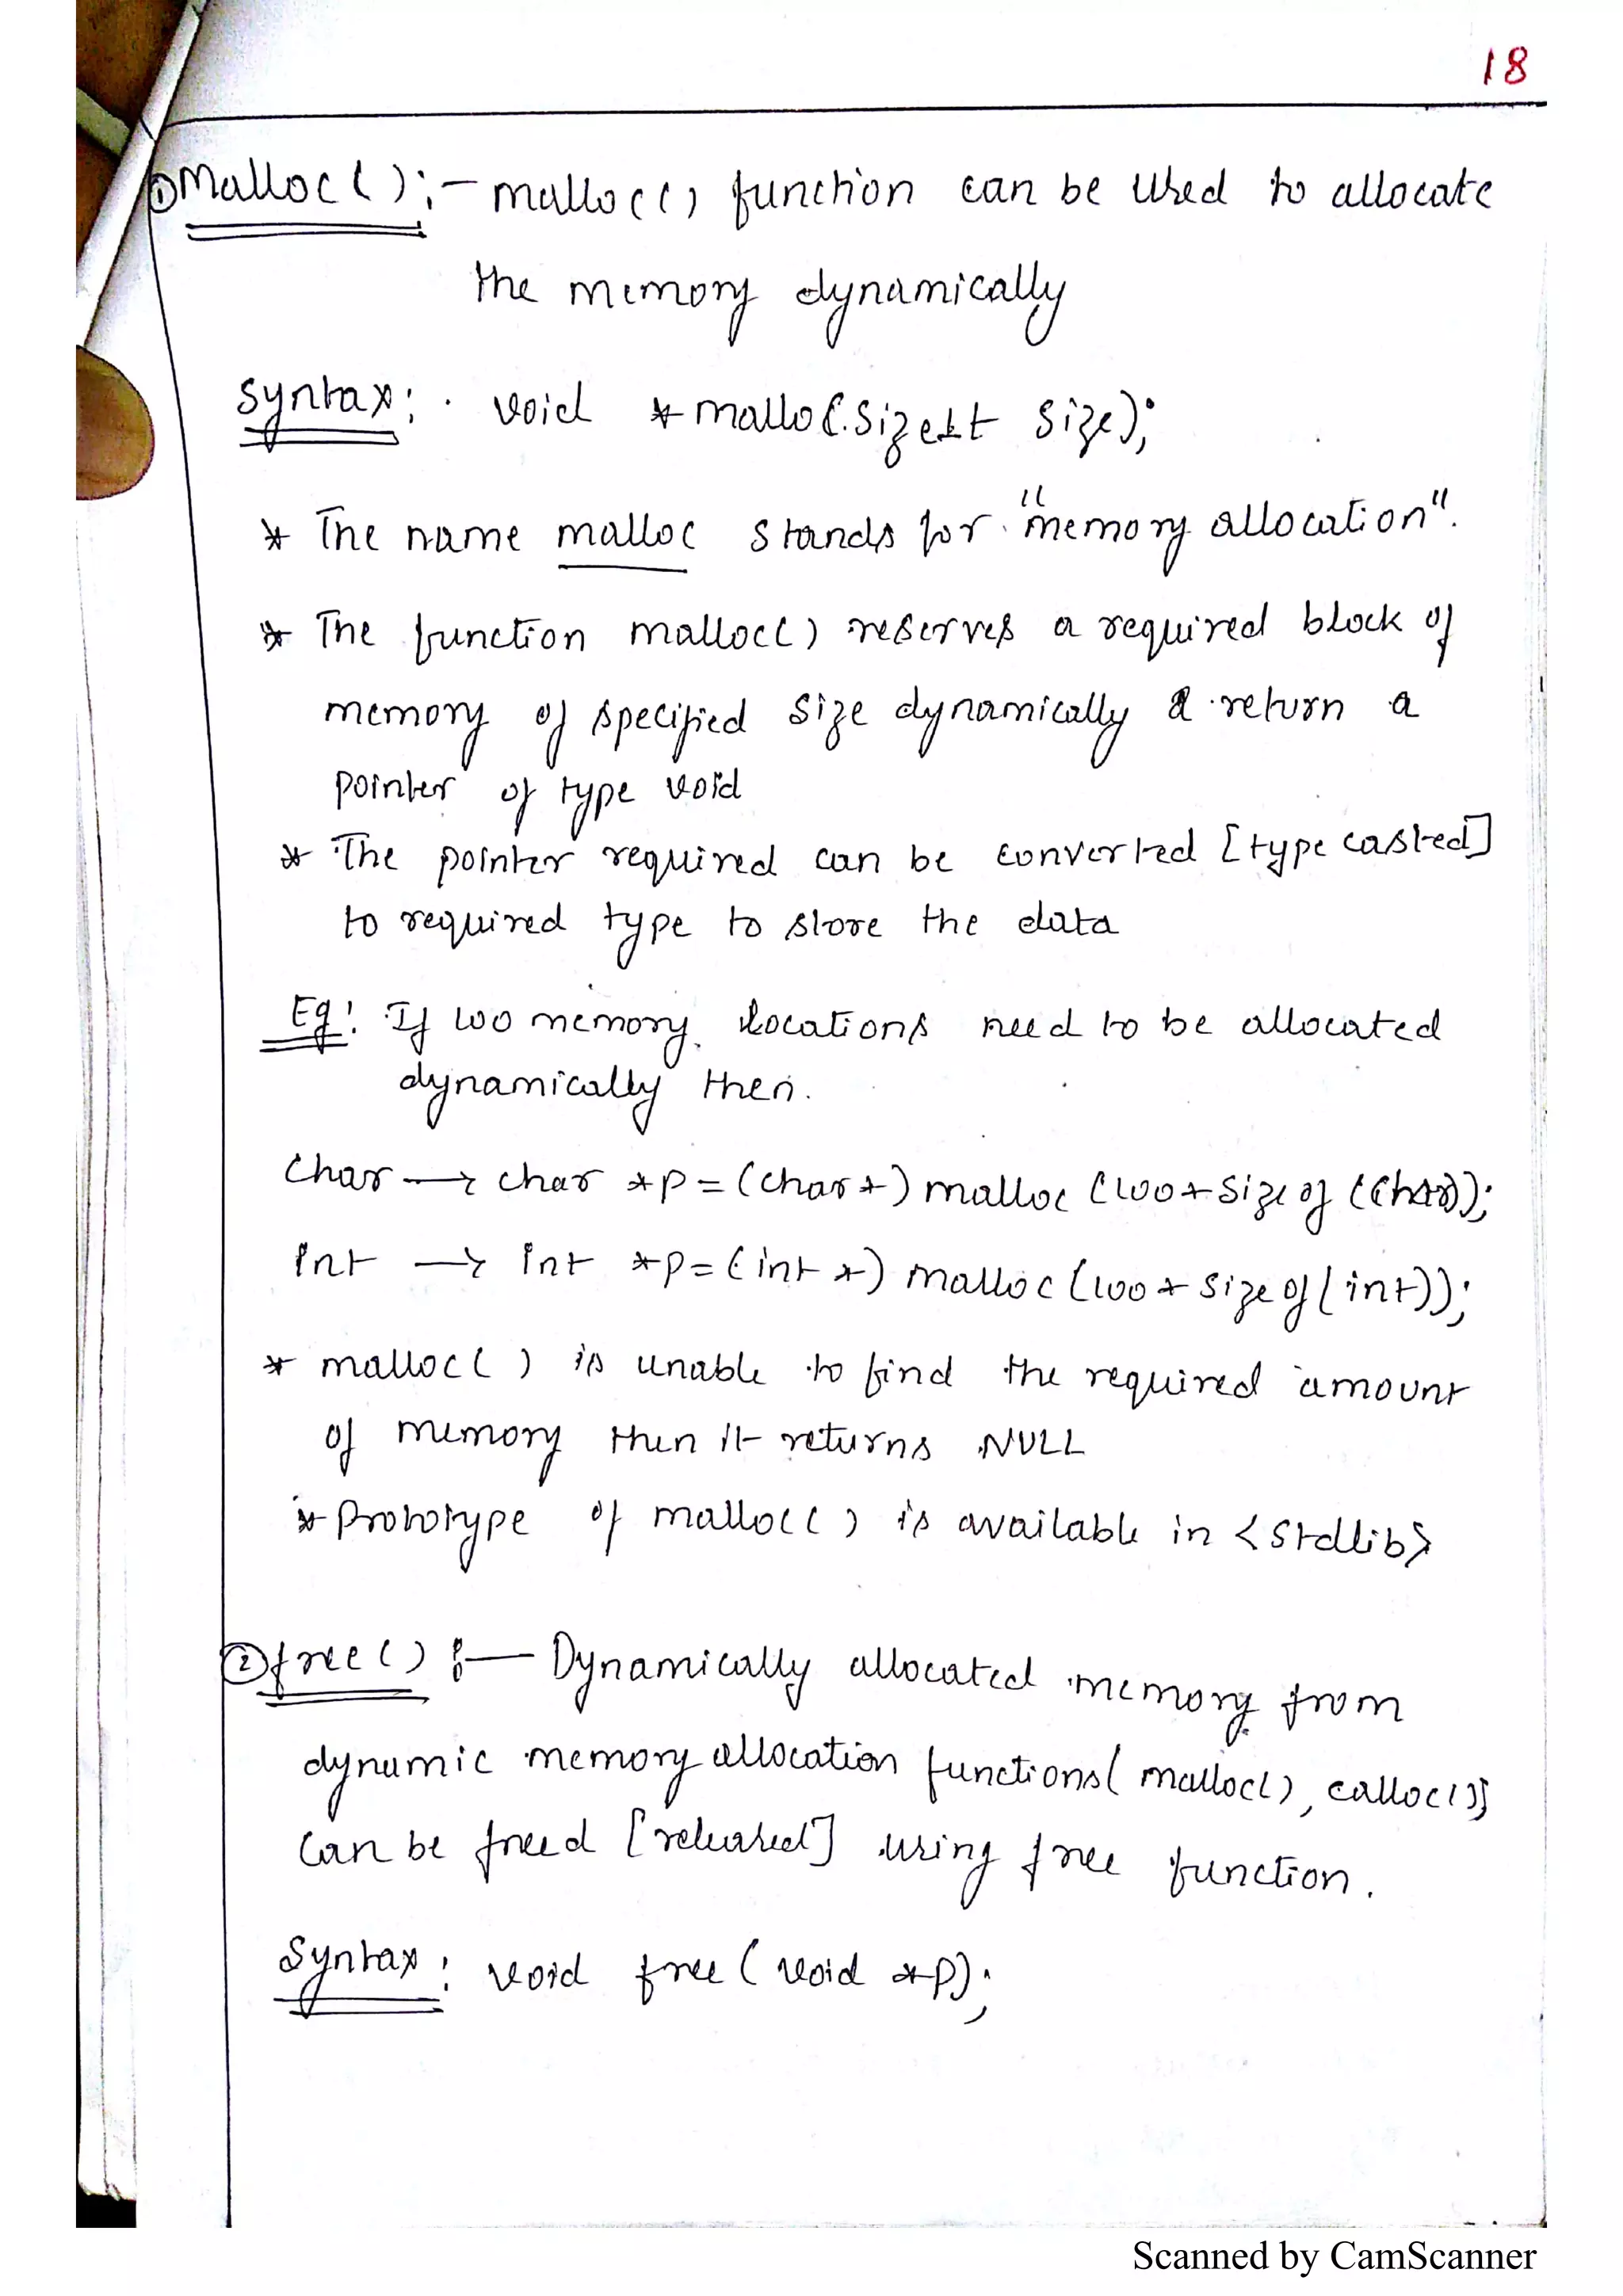 18
① Malloc() :- malloc() function can be used to allocate
the memory dynamically
Syntax: void *malloc(size_t size);
* The name malloc stands for "memory allocation".
* The function malloc() reserves a required block of
memory of specified size dynamically & return a
pointer of type void
* The pointer required can be converted [type casted]
to required type to store the data
Eg: If 100 memory locations need to be allocated
dynamically then.
Char → char *p = (char *) malloc (100 * size of (char));
int → int *p = (int *) malloc (100 * size of (int));
* malloc() is unable to find the required amount
of memory then it returns NULL
* Prototype of malloc() is available in <stdlib>
② free() :- Dynamically allocated memory from
dynamic memory allocation functions (malloc(), calloc())
can be freed [released] using free function.
Syntax: void free (void *p);
Scanned by CamScanner